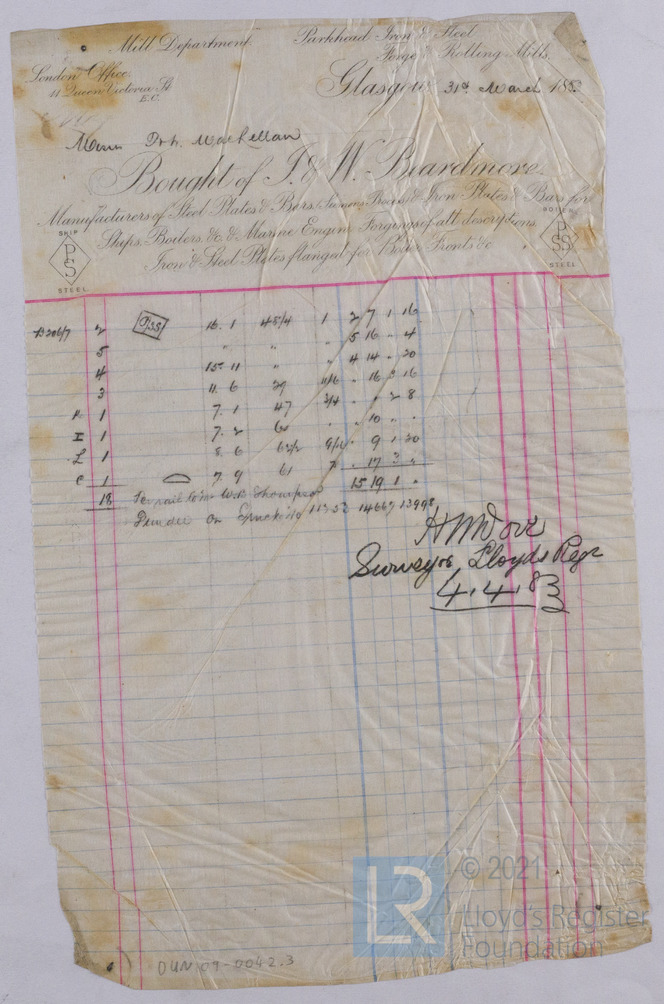 Mill Department.
Parkhead Iron & Steel
Forge & Rolling Mills.
London Office
41 Queen Victoria St
E.C.
Glasgow 31st March 1883
Messrs P. & W. MacLellan
Bought of I. & W. Beardmore.
Manufacturers of Steel Plates & Bars, Siemens Process & Iron Plates & Bars for
Ships, Boilers, &c. & Marine Engine Forgings of all descriptions.
Iron & Steel Plates flanged for Boiler Fronts &c
SHIP
PS
STEEL
BOILER
PSS
STEEL
2 PSS 16. 1 45 3/4 1 2 7 1 16
5 " " " 5 16 " 4
4 15. 11 " " 4 14 " 20
3 11. 6 29 11/16 " 16 3 16
K 1 7. 1 47 3/4 " " 2 8
I 1 7. 2 60 " " 10 " "
L 1 8. 6 62 1/2 9/16 " 9 1 20
C 1 7. 9 61 " 17 3 "
18 15 19 1 "
Dundee 14667 13998
H M Dove
Surveyor Lloyds Regr
4.4.83
DUN 09-0042.3
LR
© 2021
Lloyd's Register
Foundation